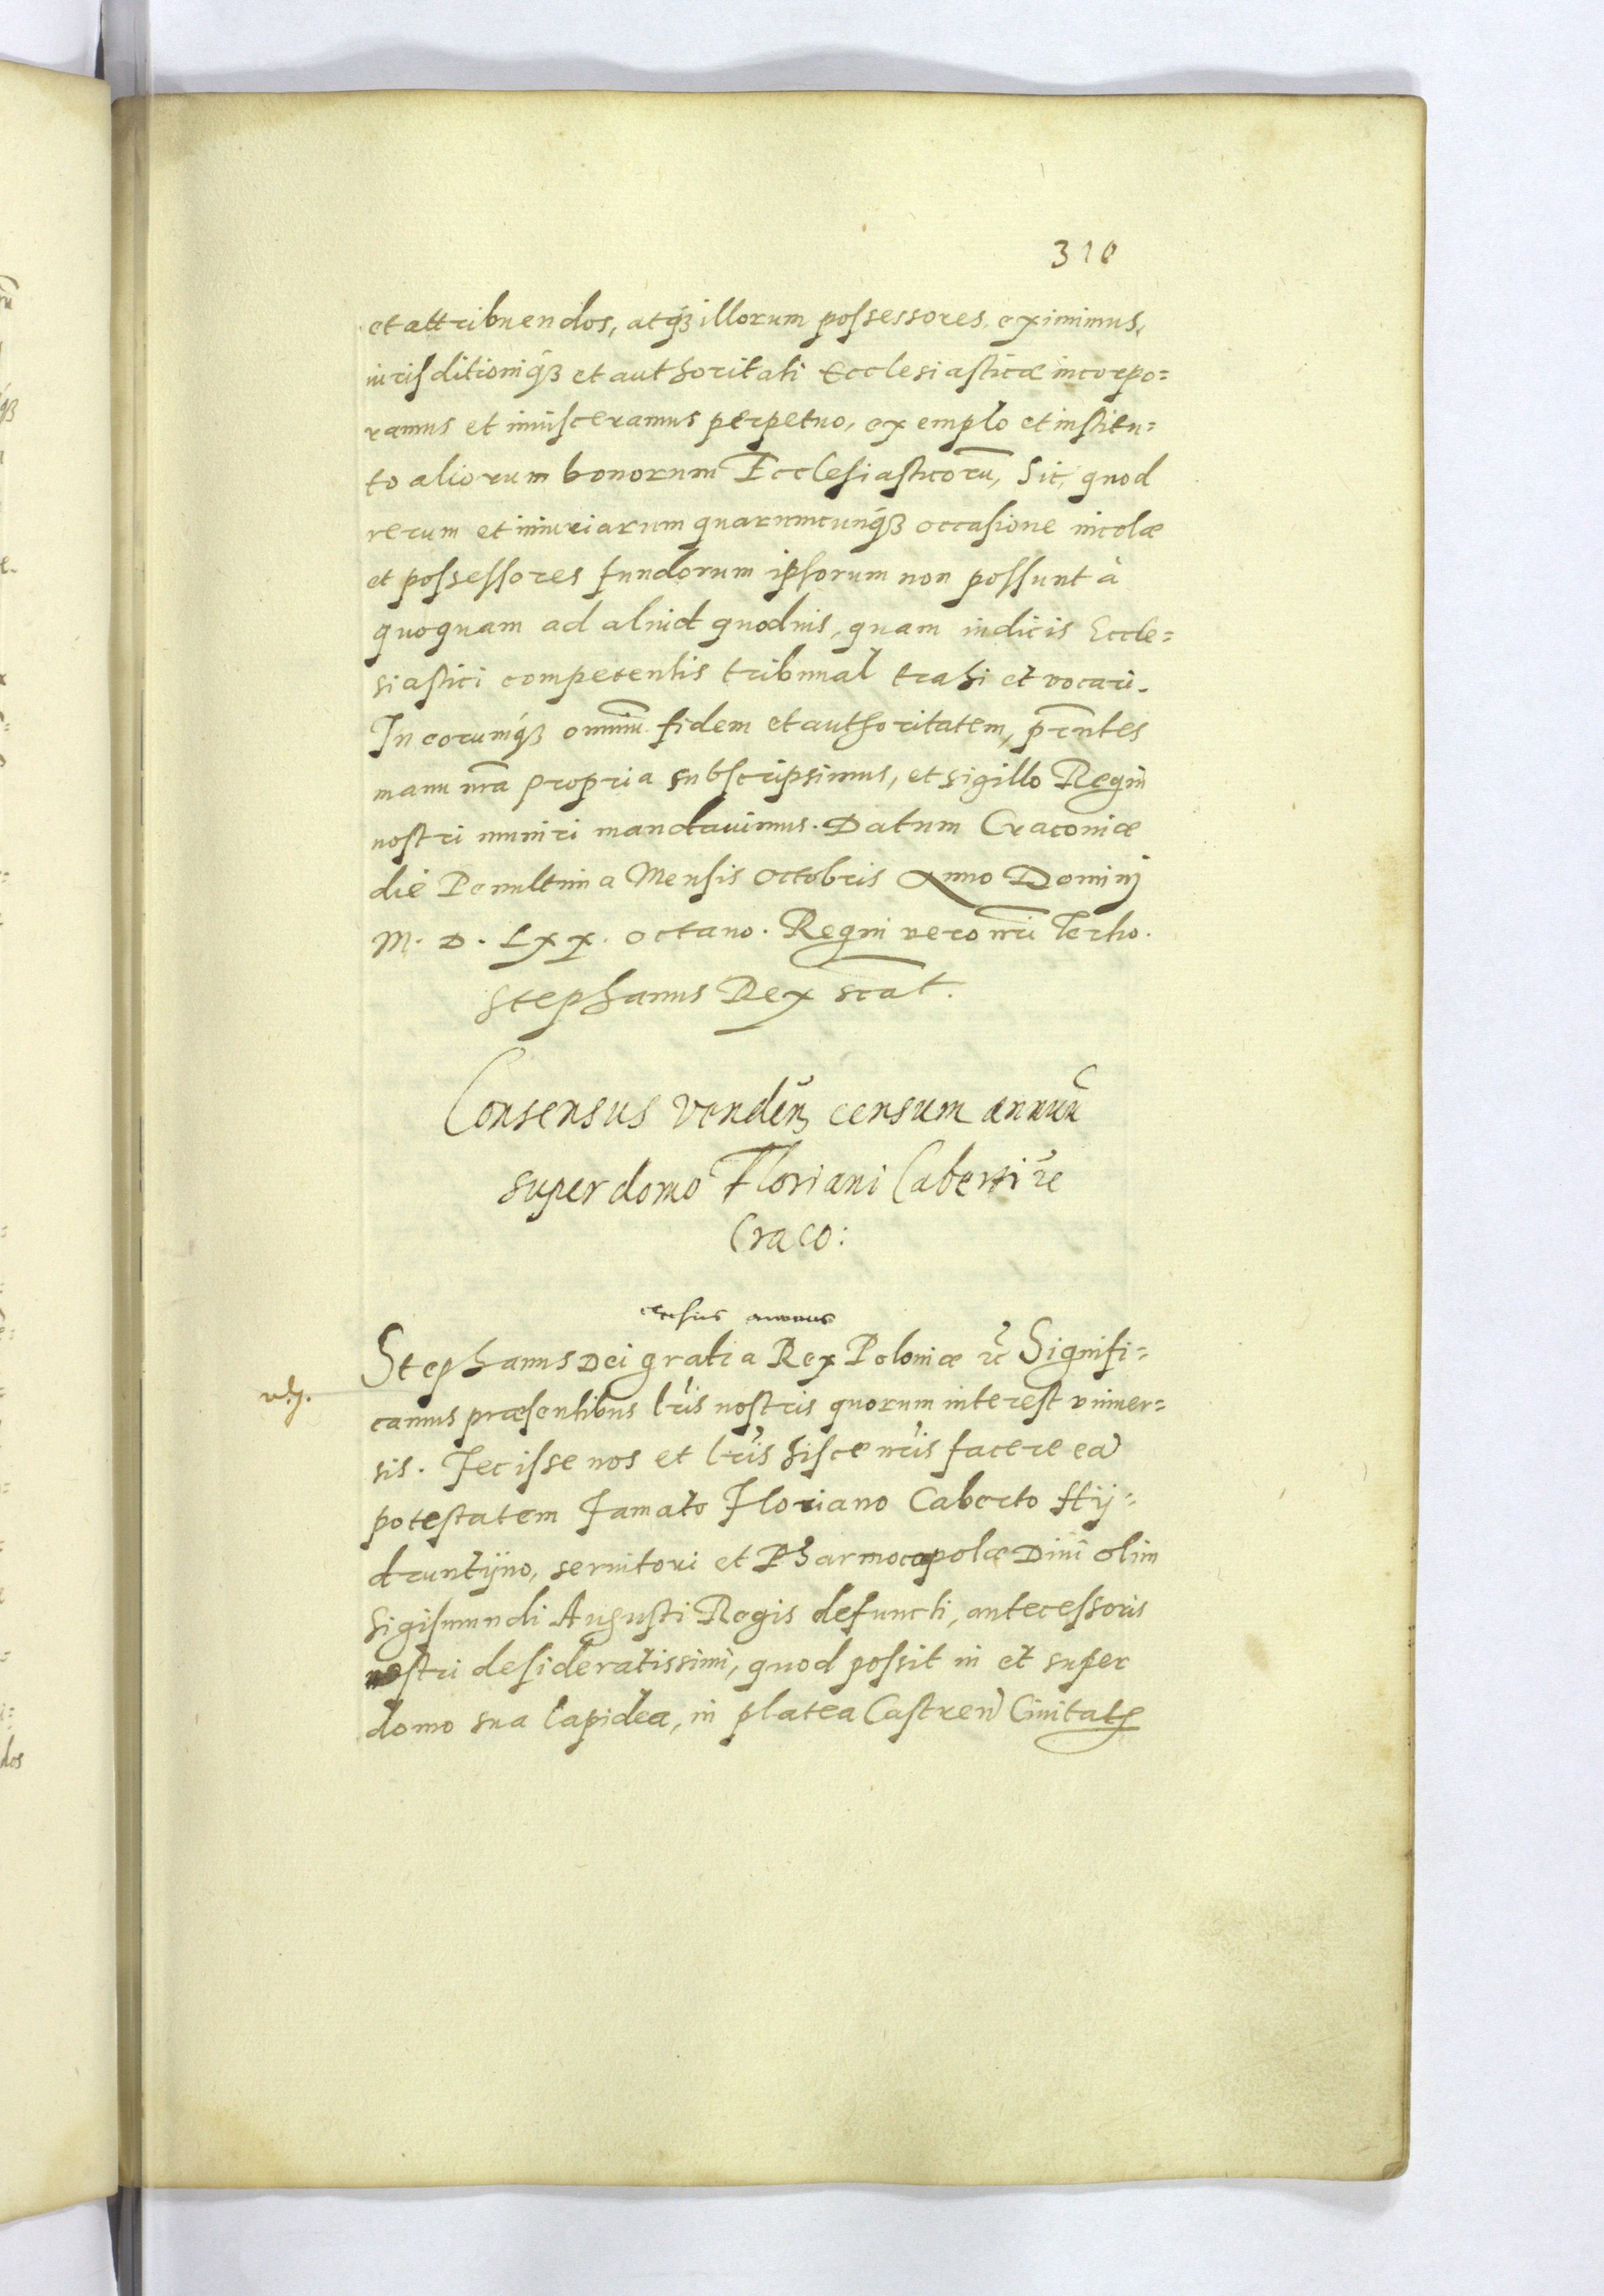 310
et attribuendos, atq₃ illorum possessores, eximimus,
iurisditioniq₃ et authoritati Ecclesiasticæ incorpo=
ramus et inuisceramus perpetuo, exemplo et institu=
to aliorum bonorum Ecclesiasticorū, Sic, quod
rerum et iniuriarum quarumcunq₃ occasione incolæ
et possessores fundorum ipsorum non possunt à
quoquam ad aliud quoduis, quam iudicis Eccle=
siastici competentis tribunal trahi et vocari.
In eorumq₃ omniū fidem et authoritatem, pr̄ntes
manu nr̄a propria subscripsimus, et sigillo Regni
nostri muniri mandauimus. Datum Cracouiæ
die Penultima Mensis Octobris Anno Dominj
M. D. Lxx. octauo. Regni vero nr̄i Tertio.
Stephanus Rex scāt.
Consensus venden̄ censum annuū
super domo Floriani Caberti re
Craco:
census annuus
Stephanus Dei gratia Rex Poloniæ rc̄ Signifi=
camus præsentibus lr̄is nostris quorum interest vniuer=
sis. Fecisse nos et lr̄is hisce nr̄is facere ea
potestatem Famato Floriano Caberto Hy=
druntijno, seruitori et Pharmocopolæ Diui olim
Sigismundi Augusti Regis defuncti, antecessoris
nostri desideratissimi, quod possit in et super
domo sua lapidea, in platea Castren Ciuitatꝭ